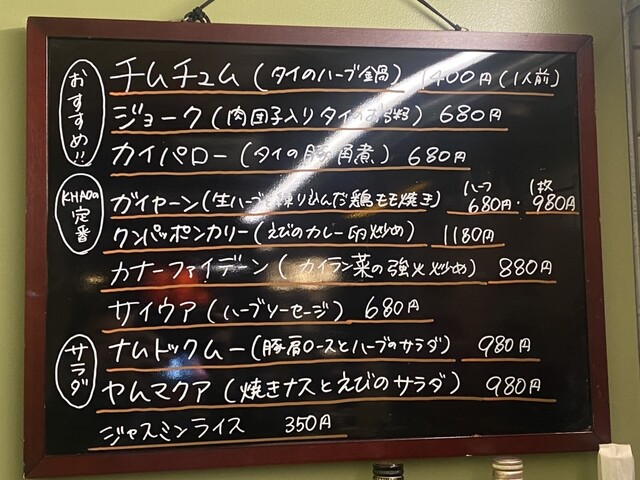 おすすめ!!
チムチュム (タイのハーブ鍋) 1400円 (1人前)
ジョーク (肉団子入りタイのお粥) 680円
カイパロー (タイの豚角煮) 680円
KHAOの定番
ガイヤーン (生ハーブ練り込んだ鶏もも焼き) ハーフ680円・1枚980円
クンパッポンカリー (えびのカレー卵炒め) 1180円
カナーファイデーン (カイラン菜の強火炒め) 880円
サイウア (ハーブソーセージ) 680円
サラダ
ナムトックムー (豚肩ロースとハーブのサラダ) 980円
ヤムマクア (焼きナスとえびのサラダ) 980円
ジャスミンライス 350円